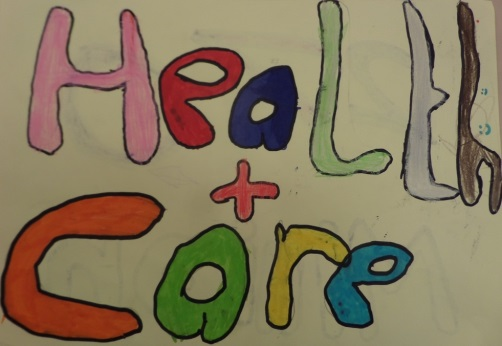 HeaLth
+
Care